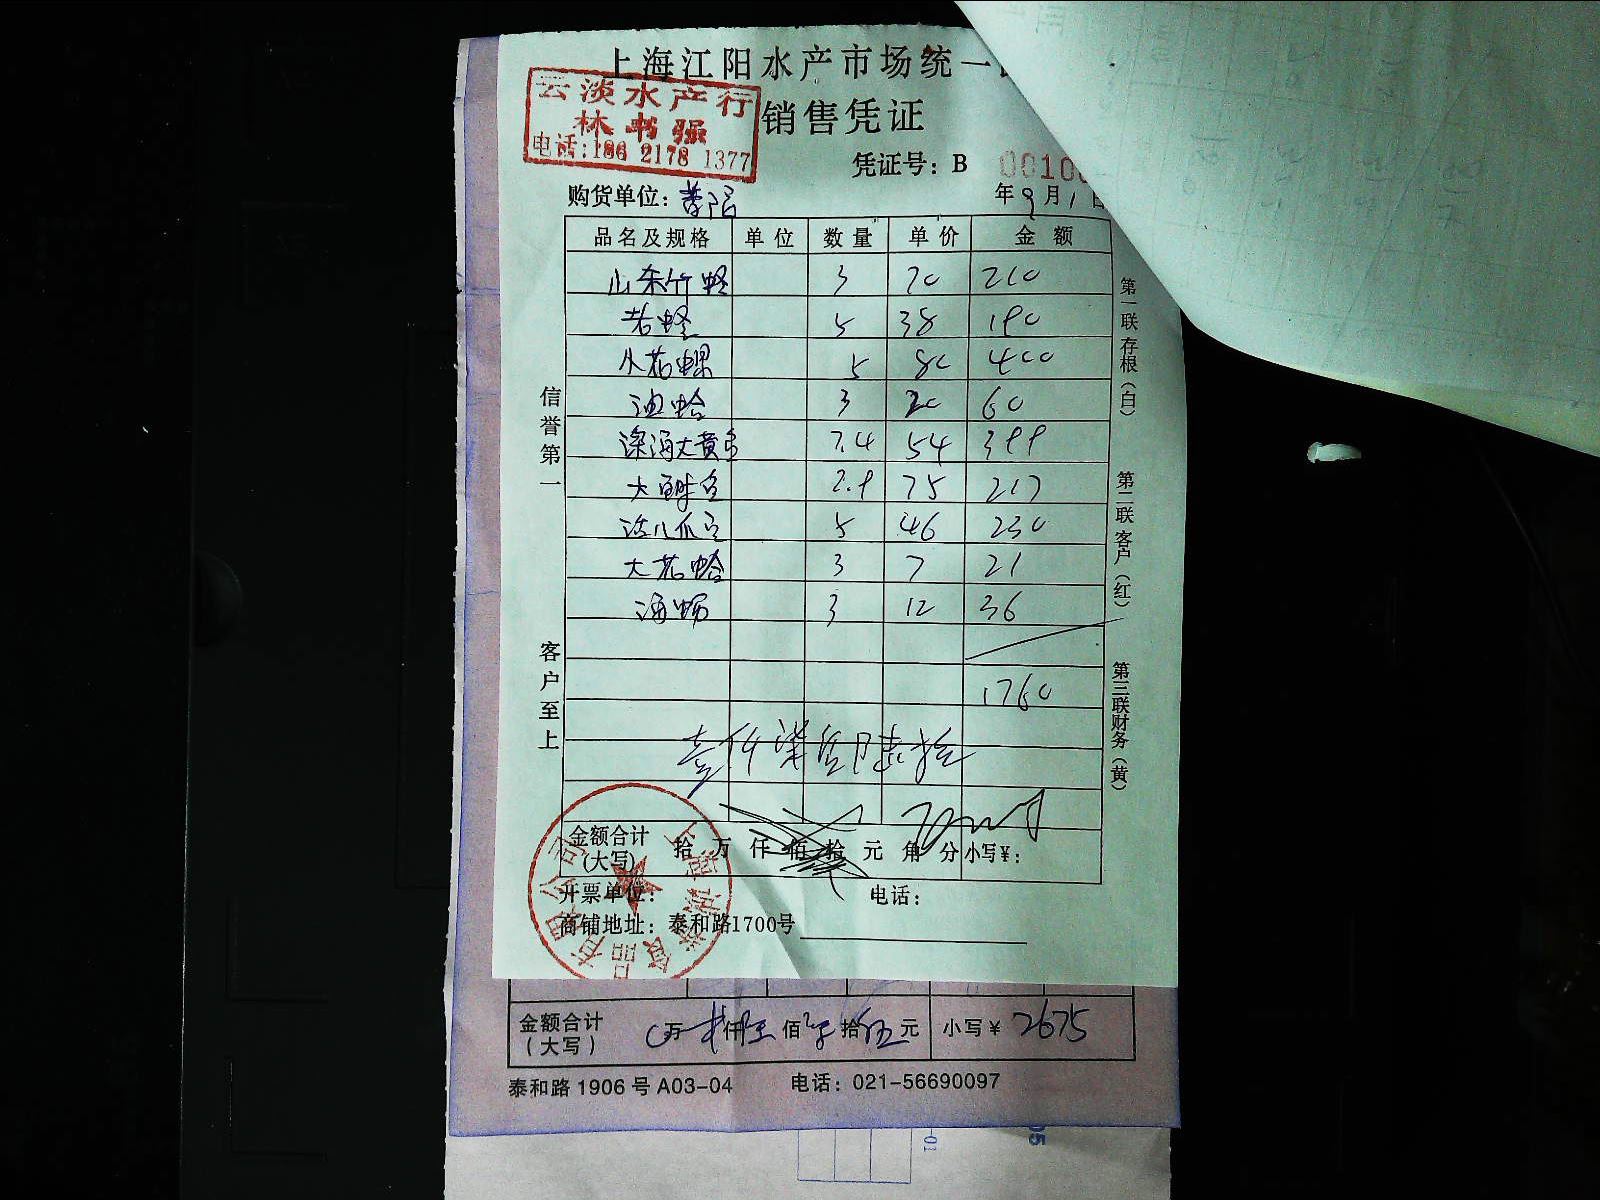 上海江阳水产市场统一
销售凭证
云淡水产行
林书强
电话:186 2178 1377
凭证号: B 00100
购货单位:
年9月1日
品名及规格 单位 数量 单价 金额
山东竹蛏 3 70 210
岩蛏 5 38 190
小花螺 5 80 400
油蛤 3 20 60
深海大黄鱼 7.4 54 399
大鲜鱼 2.9 75 217
活八爪鱼 5 46 230
大花蛤 3 7 21
海蛎 3 12 36
1760
壹仟柒佰陆拾
信誉第一
客户至上
第一联存根(白)
第二联客户(红)
第三联财务(黄)
金额合计(大写) 拾 万 仟 佰 拾 元 角 分 小写¥:
开票单位: 电话:
商铺地址: 泰和路1700号
金额合计(大写) 万 仟 佰 拾 伍元 小写¥ 2675
泰和路1906号A03-04 电话: 021-56690097
-01
05